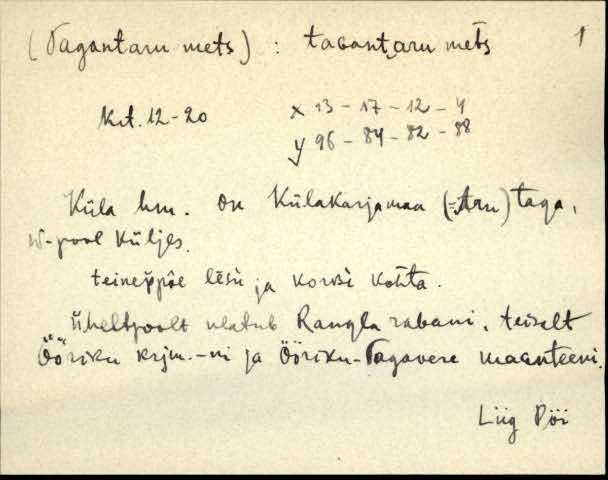 (Tagantaru mets) : taɢant,aru mets 1
Krt. 12-20 x 13 - 17 - 12 - 4
y 96 - 84 - 82 - 88
Küla hm. on Külakarjamaa (=Aru) taga,
W-pool küljes.
ja kohta.
üheltpoolt ulatub Rangla rabani, teiselt
Ööriku krjm.-ni ja Ööriku-Tagavere maanteeni.
Liig Pöi